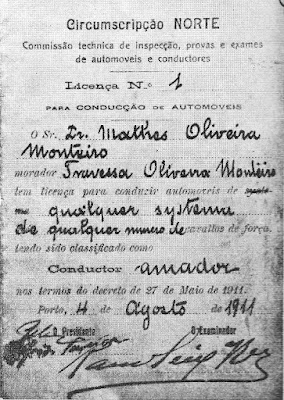 Circumscripção NORTE
Commissão technica de inspecção, provas e exames
de automoveis e conductores
Licença N.º 1
PARA CONDUCÇÃO DE AUTOMOVEIS
O Sr. Dr. Mathes Oliveira
Monteiro
morador Travessa Oliveira Monteiro
tem licença para conduzir automoveis de
qualquer systema
de qualquer numero de cavallos de força,
tendo sido classificado como
Conductor amador
nos termos do decreto de 27 de Maio de 1911.
Porto, 4 de Agosto de 1911
O Presidente O Examinador